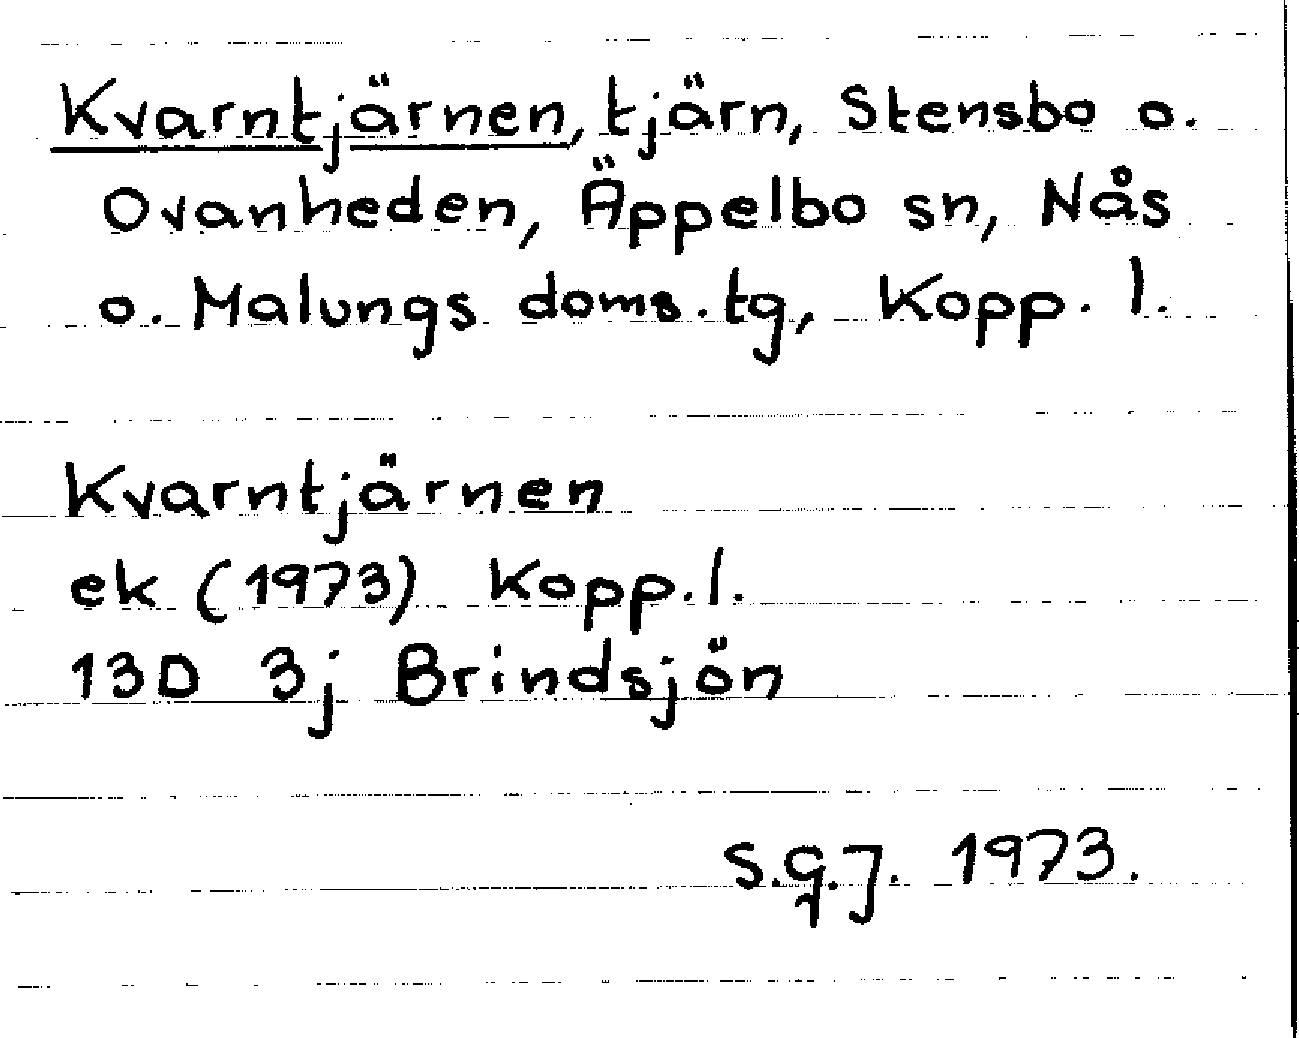 Kvarntjärnen, tjärn, Stensbo o.
Ovanheden, Äppelbo sn, Nås
o. Malungs doms.tg, Kopp. l.
Kvarntjärnen
ek (1973) Kopp.l.
13D 3j Brindsjön
S.G.J. 1973.